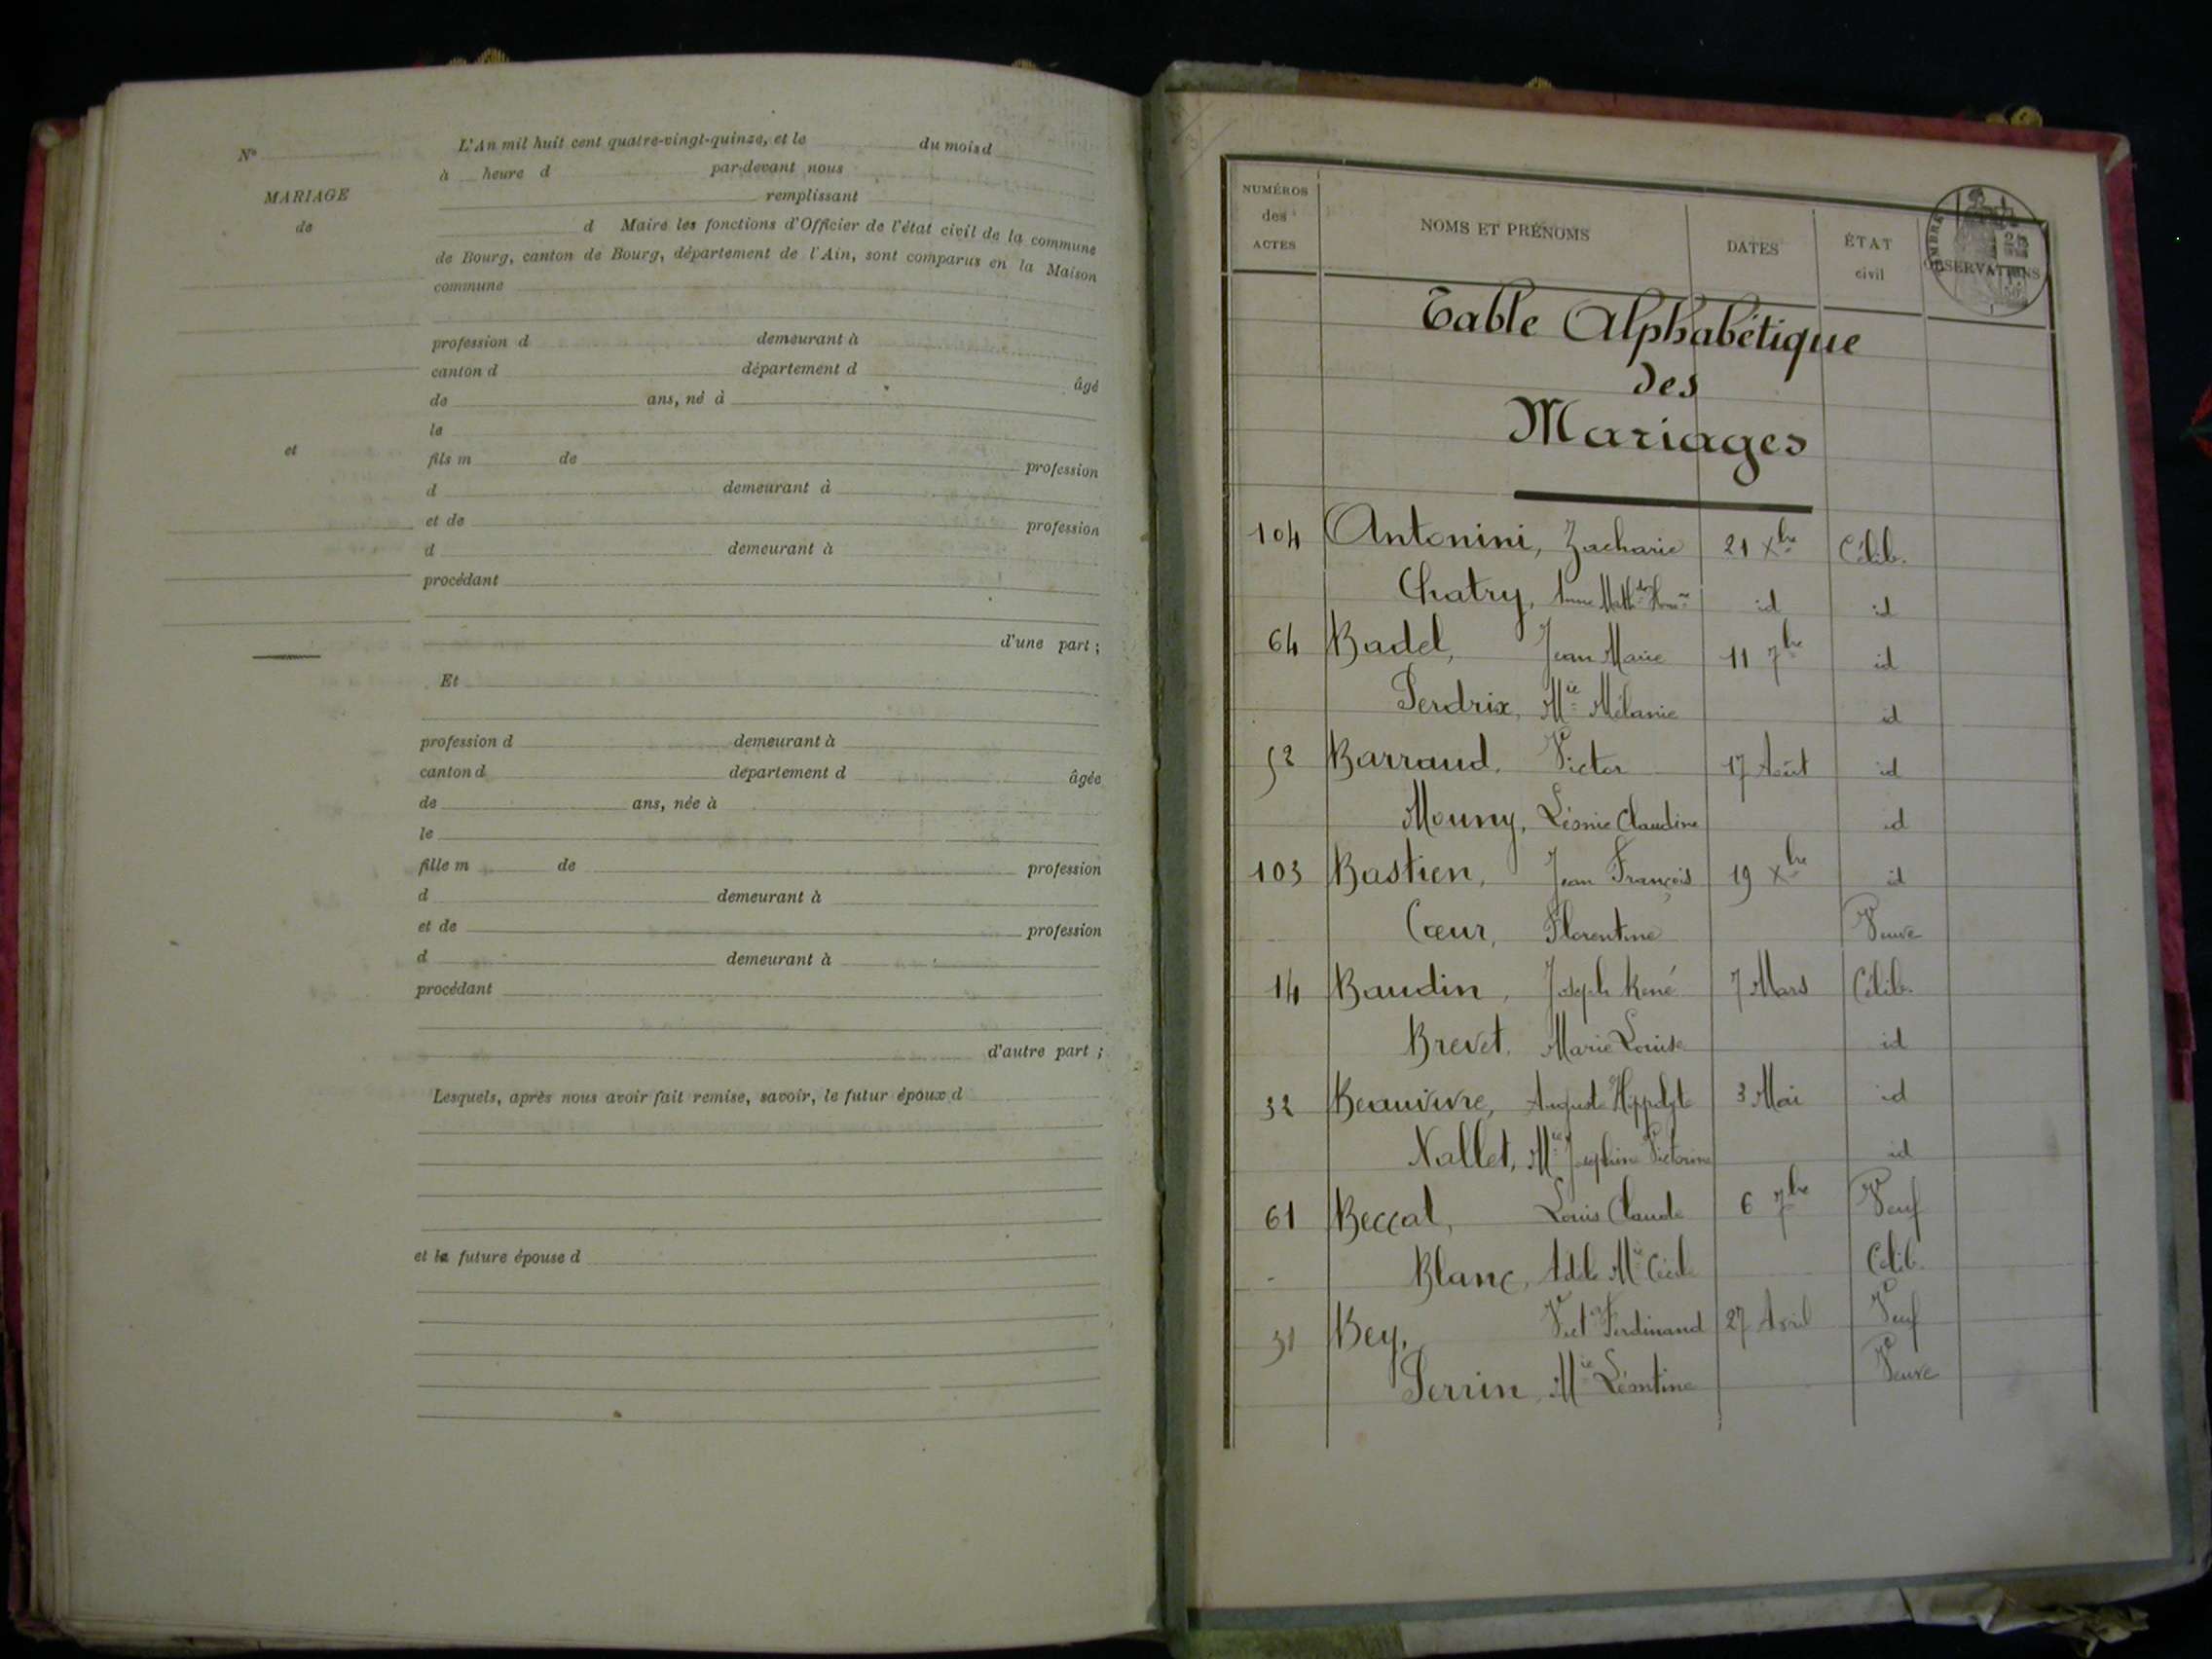 N°
MARIAGE
de
et
L'An mil huit cent quatre-vingt-quinze, et le du mois d
à heure d par-devant nous
remplissant
d Maire les fonctions d'Officier de l'état civil de la commune
de Bourg, canton de Bourg, département de l'Ain, sont comparus en la Maison
commune
profession d demeurant à
canton d département d âgé
de ans, né à
le
fils m de profession
d demeurant à
et de profession
d demeurant à
procédant
d'une part ;
Et
profession d demeurant à
canton d département d âgée
de ans, née à
le
fille m de profession
d demeurant à
et de profession
d demeurant à
procédant
d'autre part ;
Lesquels, après nous avoir fait remise, savoir, le futur époux d
et la future épouse d
NUMÉROS des ACTES NOMS ET PRÉNOMS DATES ÉTAT civil OBSERVATIONS
Table Alphabétique
des
Mariages
104 Antonini, Zacharie 21 Xbre Célib.
Chatry, Anne id id
64 Badel, Jean Marie 11 7bre id
Perdrix, Mie Mélanie id
52 Barraud, Victor 17 Août id
Mouny, Léonie Claudine id
103 Bastien, Jean François 19 Xbre id
Cœur, Florentine Veuve
14 Baudin, Joseph René 7 Mars Célib.
Brevet, Marie Louise id
32 Beauvivre, Auguste Hippolyte 3 Mai id
Nallet, Mie Joséphine Victorine id
61 Beccat, Louis Claude 6 7bre Veuf
Blanc, Adèle Mie Cécile Célib.
31 Bey, Vict Ferdinand 27 Avril Veuf
Perrin, Mie Léontine Veuve